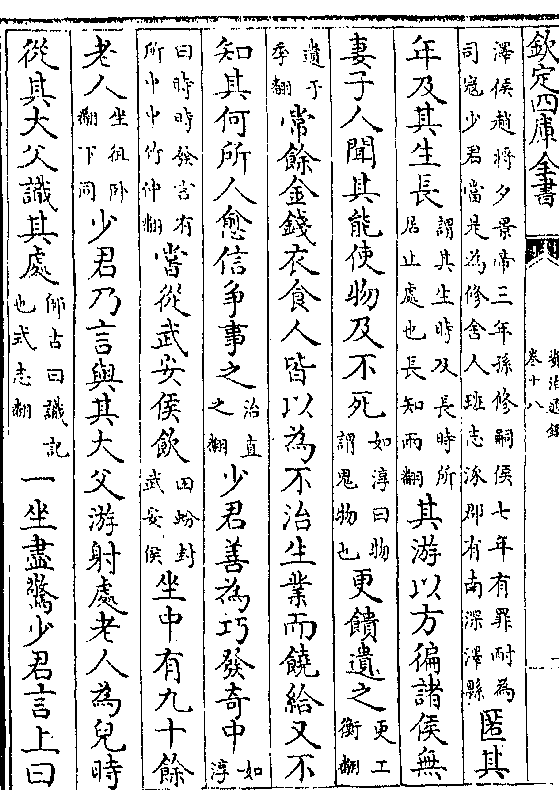 欽定四庫全書
資治通鑑
卷十八
澤侯趙將夕景帝三年孫修嗣侯七年有罪耐為
司寇少君當是為修舍人班志涿郡有南深澤縣
匿其
年及其生長
謂其生時及長時所
居止處也長知兩翻
其游以方徧諸侯無
妻子人聞其能使物及不死
如淳曰物
謂鬼物也
更饋遺之
更工
衡翻
遺于
季翻
常餘金錢衣食人皆以為不治生業而饒給又不
知其何所人愈信爭事之
治直
之翻
少君善為巧發奇中
如
淳
曰時時發言有
所中中竹仲翻
嘗從武安侯飲
田蚡封
武安侯
坐中有九十餘
老人
坐徂卧
翻下同
少君乃言與其大父游射處老人為兒時
從其大父識其處
師古曰識記
也式志翻
一坐盡驚少君言上曰